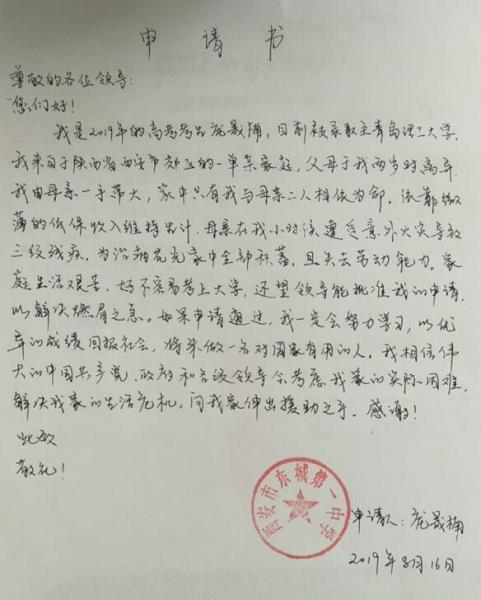 申请书
尊敬的各位领导:
您们好!
我是2019年的高考考生庞晟楠,目前被录取至青岛理工大学.
我来自于陕西省西安市郊区的一单亲家庭,父母于我两岁时离异.
我由母亲一手带大,家中只有我与母亲二人相依为命,依靠微
薄的低保收入维持生计.母亲在我小时候遭受意外火灾导致
三级残疾,为治病花光家中全部积蓄,且失去劳动能力。家
庭生活艰苦,好不容易考上大学,还望领导能批准我的申请,
以解决燃眉之急。如果申请通过,我一定会努力学习,以优
异的成绩回报社会,将来做一名对国家有用的人。我相信伟
大的中国共产党、政府和各级领导会考虑我家的实际困难,
解决我家的生活危机,向我家伸出援助之手。感谢!
此致
敬礼!
西安市东城第一中学
申请人:庞晟楠
2019年8月16日